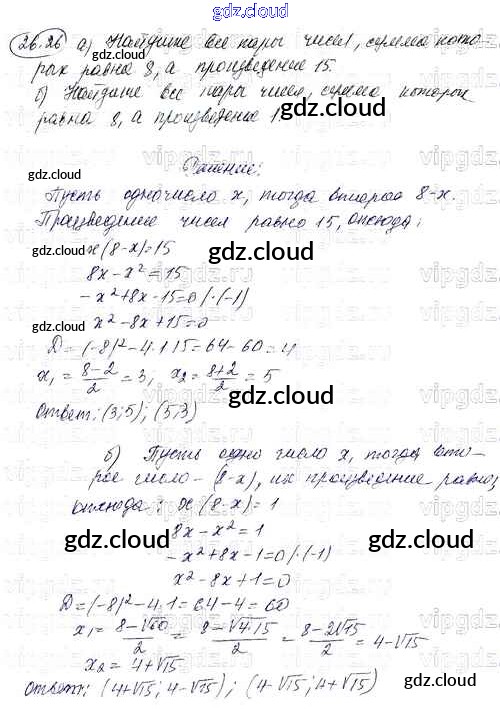 gdz.cloud
26.26 а) Найдите все пары чисел, сумма кото-
рых равна 8, а произведение 15.
б) Найдите все пары чисел, сумма которых
равна 8, а произведение 1.
Решение:
Пусть одно число x, тогда второе 8-x.
Произведение чисел равно 15, отсюда:
x(8-x)=15
8x-x²=15
-x²+8x-15=0 /·(-1)
x²-8x+15=0
D=(-8)²-4·1·15=64-60=4
x₁=(8-2)/2=3, x₂=(8+2)/2=5
Ответ: (3;5); (5;3)
б) Пусть одно число x, тогда вто-
рое число - (8-x), их произведение равно 1
отсюда: x(8-x)=1
8x-x²=1
-x²+8x-1=0 /·(-1)
x²-8x+1=0
D=(-8)²-4·1=64-4=60
x₁=(8-√60)/2=(8-√4·15)/2=(8-2√15)/2=4-√15
x₂=4+√15
Ответ: (4+√15; 4-√15); (4-√15; 4+√15)
gdz.cloud